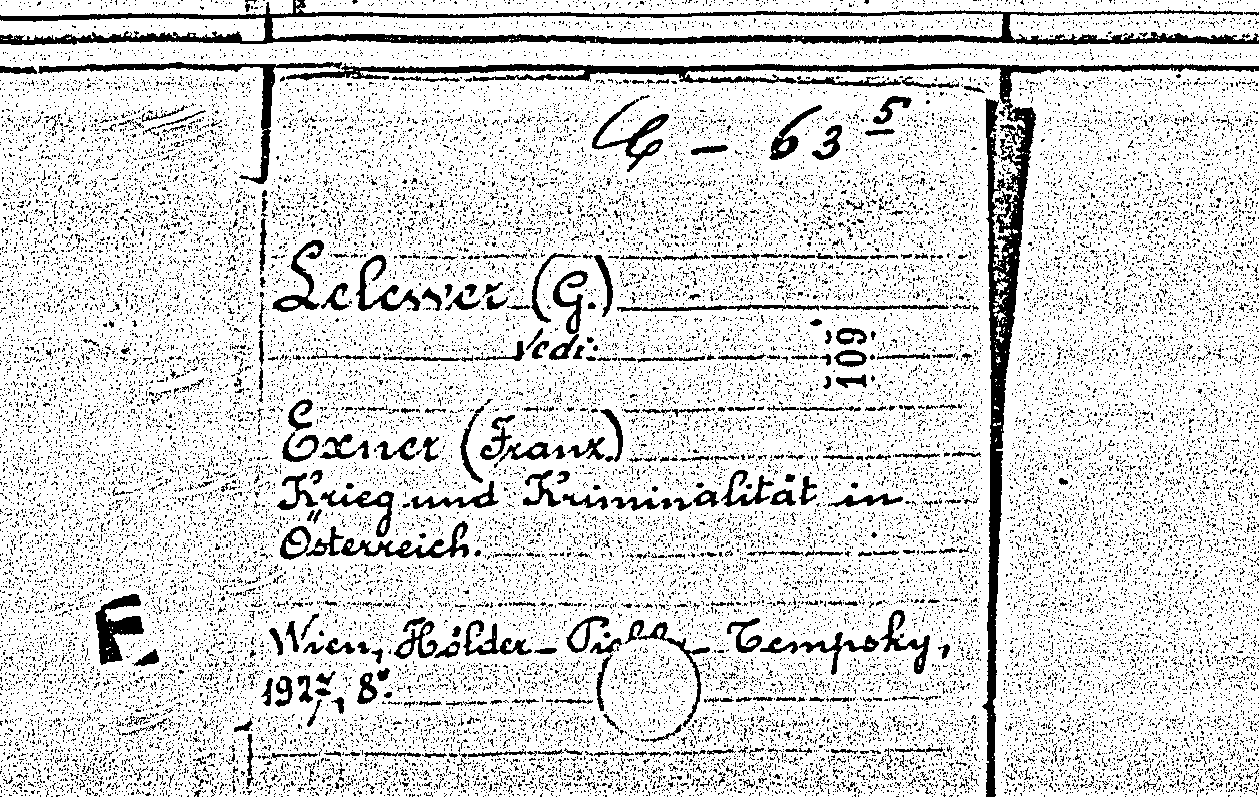 C - 63 5
Lelewer (G.)
Vedi:
109
Exner (Franz)
Krieg und Kriminalität in
Österreich.
Wien, Hölder - - Tempsky,
1927, 8°.
F